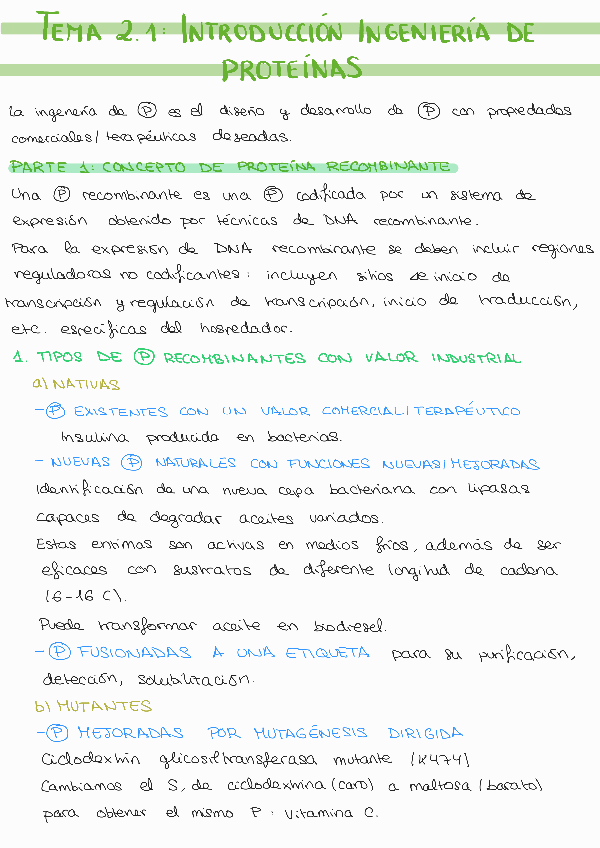 TEMA 2.1: INTRODUCCIÓN INGENIERÍA DE
PROTEÍNAS
La ingeneria de Ⓟ es el diseño y desarrollo de Ⓟ con propiedades
comerciales/terapéuticas deseadas.
PARTE 1: CONCEPTO DE PROTEÍNA RECOMBINANTE
Una Ⓟ recombinante es una Ⓟ codificada por un sistema de
expresión obtenido por técnicas de DNA recombinante.
Para la expresión de DNA recombinante se deben incluir regiones
reguladoras no codificantes: incluyen sitios de inicio de
transcripción y regulación de transcripción, inicio de traducción,
etc. específicas del hospedador.
1. TIPOS DE Ⓟ RECOMBINANTES CON VALOR INDUSTRIAL
a) NATIVAS
-Ⓟ EXISTENTES CON UN VALOR COMERCIAL/TERAPÉUTICO
Insulina producida en bacterias.
- NUEVAS Ⓟ NATURALES CON FUNCIONES NUEVAS/MEJORADAS
Identificación de una nueva cepa bacteriana con lipasas
capaces de degradar aceites variados.
Estas enzimas son activas en medios fríos, además de ser
eficaces con sustratos de diferente longitud de cadena
(6-16 C).
Puede transformar aceite en biodiesel.
-Ⓟ FUSIONADAS A UNA ETIQUETA para su purificación,
detección, solubilización.
b) MUTANTES
-Ⓟ MEJORADAS POR MUTAGÉNESIS DIRIGIDA
Ciclodextrin glicosiltransferasa mutante (K474)
Cambiamos el S, de ciclodextrina (caro) a maltosa (barato)
para obtener el mismo P: vitamina C.